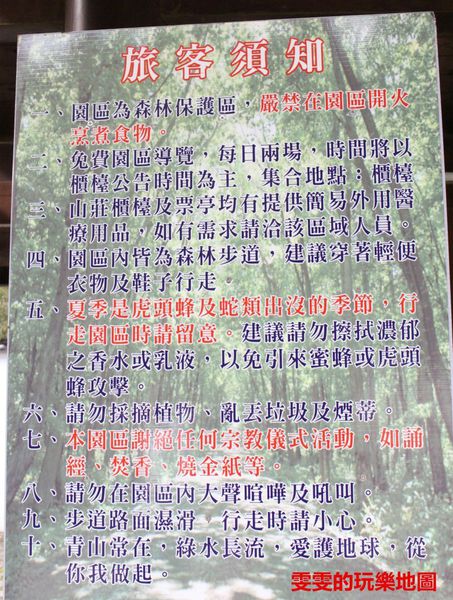 旅客須知
一、園區為森林保護區，嚴禁在園區開火
烹煮食物。
二、免費園區導覽，每日兩場，時間將以
櫃檯公告時間為主，集合地點：櫃檯
三、山莊櫃檯及票亭均有提供簡易外用醫
療用品，如有需求請洽該區域人員。
四、園區內皆為森林步道，建議穿著輕便
衣物及鞋子行走。
五、夏季是虎頭蜂及蛇類出沒的季節，行
走園區時請留意。建議請勿擦拭濃郁
之香水或乳液，以免引來蜜蜂或虎頭
蜂攻擊。
六、請勿採摘植物、亂丟垃圾及煙蒂。
七、本園區謝絕任何宗教儀式活動，如誦
經、焚香、燒金紙等。
八、請勿在園區內大聲喧嘩及吼叫。
九、步道路面濕滑，行走時請小心。
十、青山常在，綠水長流，愛護地球，從
你我做起。
雯雯的玩樂地圖